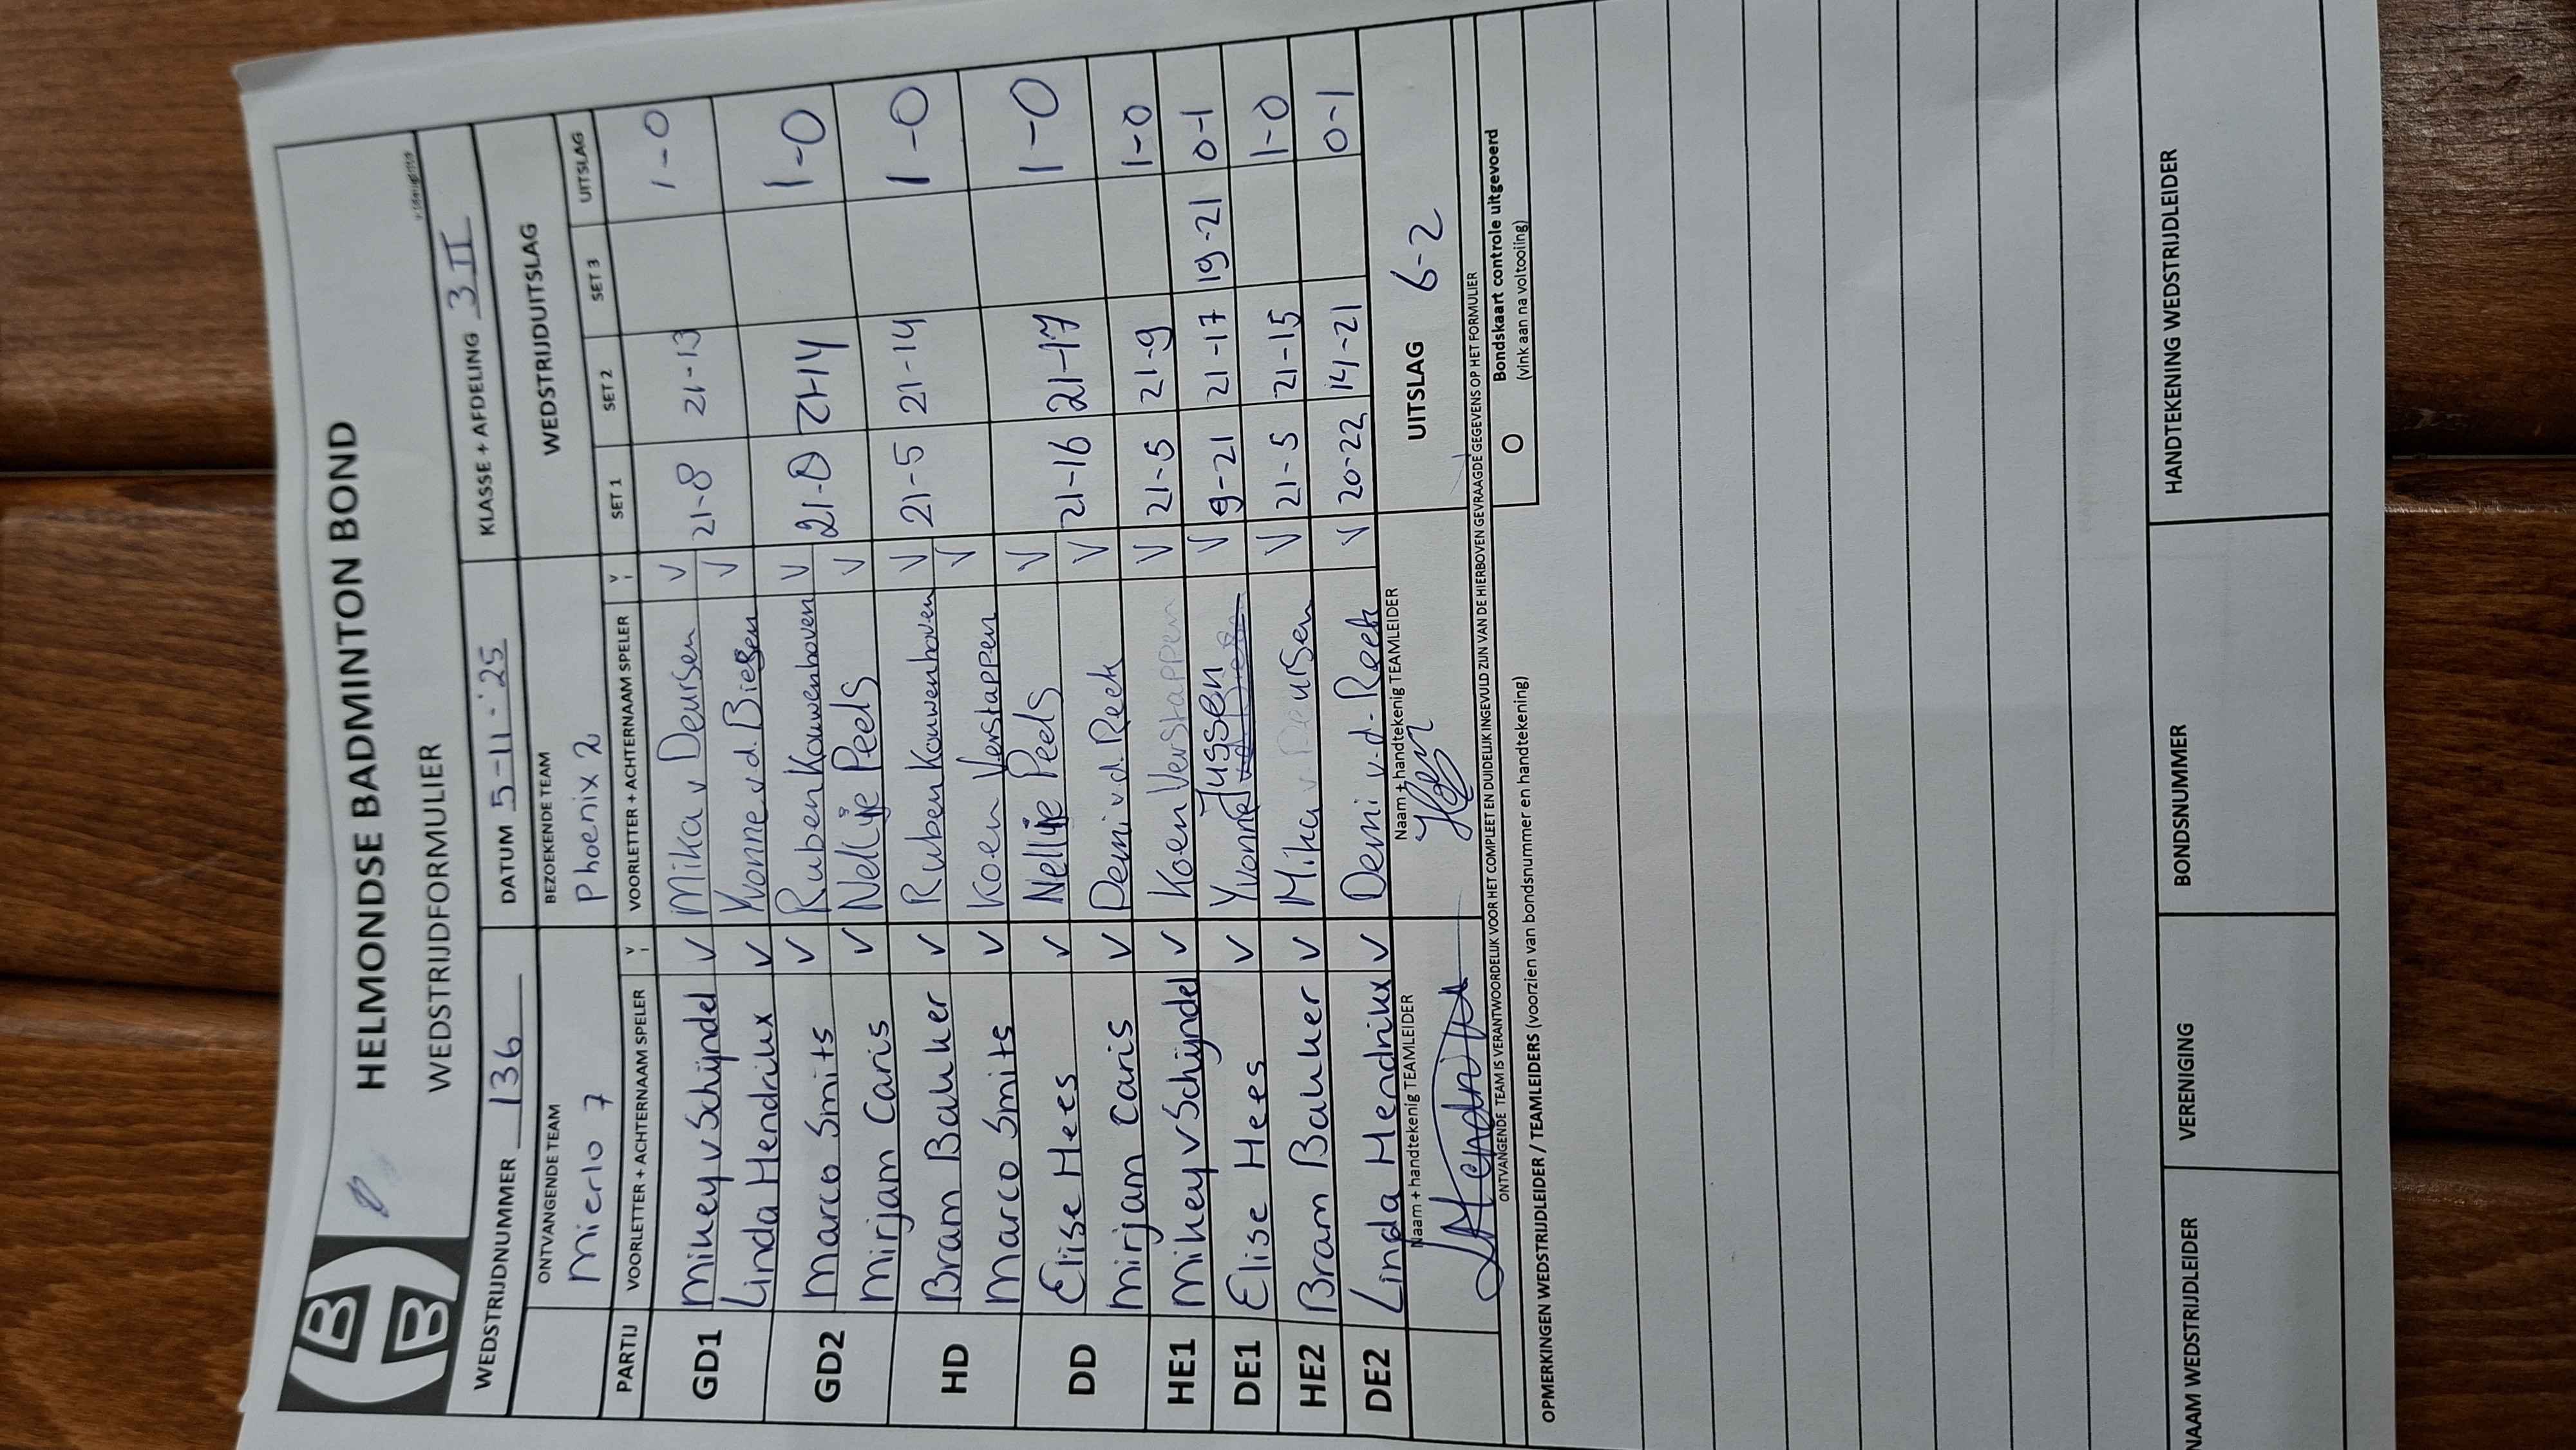 HELMONDSE BADMINTON BOND
WEDSTRIJDFORMULIER
WEDSTRIJDNUMMER 136 DATUM 5-11-'25 KLASSE + AFDELING 3 II
ONTVANGENDE TEAM BEZOEKENDE TEAM WEDSTRIJDUITSLAG
Mierlo 7 Phoenix 2
PARTIJ VOORLETTER + ACHTERNAAM SPELER V VOORLETTER + ACHTERNAAM SPELER V SET 1 SET 2 SET 3 UITSLAG
GD1 Mikey v Schijndel V Mika v Deursen V 21-8 21-13 1-0
Linda Hendrikx V Yvonne v.d. Biesen V
GD2 Marco Smits V Ruben Kouwenhoven V 21-8 21-14 1-0
Mirjam Caris V Nellije Peels V
HD Bram Bakker V Ruben Kouwenhoven V 21-5 21-14 1-0
Marco Smits V Koen Verstappen V
DD Elise Hees V Nellije Peels V 21-16 21-17 1-0
Mirjam Caris V Demi v.d. Reek V
HE1 Mikey v Schijndel V Koen Verstappen V 21-5 21-9 1-0
DE1 Elise Hees V Yvonne Jussen V 9-21 21-17 19-21 0-1
HE2 Bram Bakker V Mika v. Deursen V 21-5 21-15 1-0
DE2 Linda Hendrikx V Demi v.d. Reek V 20-22 14-21 0-1
Naam + handtekenig TEAMLEIDER Naam + handtekenig TEAMLEIDER UITSLAG 6-2
ONTVANGENDE TEAM IS VERANTWOORDELIJK VOOR HET COMPLEET EN DUIDELIJK INGEVULD ZIJN VAN DE HIERBOVEN GEVRAAGDE GEGEVENS OP HET FORMULIER
O Bondskaart controle uitgevoerd
(vink aan na voltooiing)
OPMERKINGEN WEDSTRIJDLEIDER / TEAMLEIDERS (voorzien van bondsnummer en handtekening)
NAAM WEDSTRIJDLEIDER VERENIGING BONDSNUMMER HANDTEKENING WEDSTRIJDLEIDER